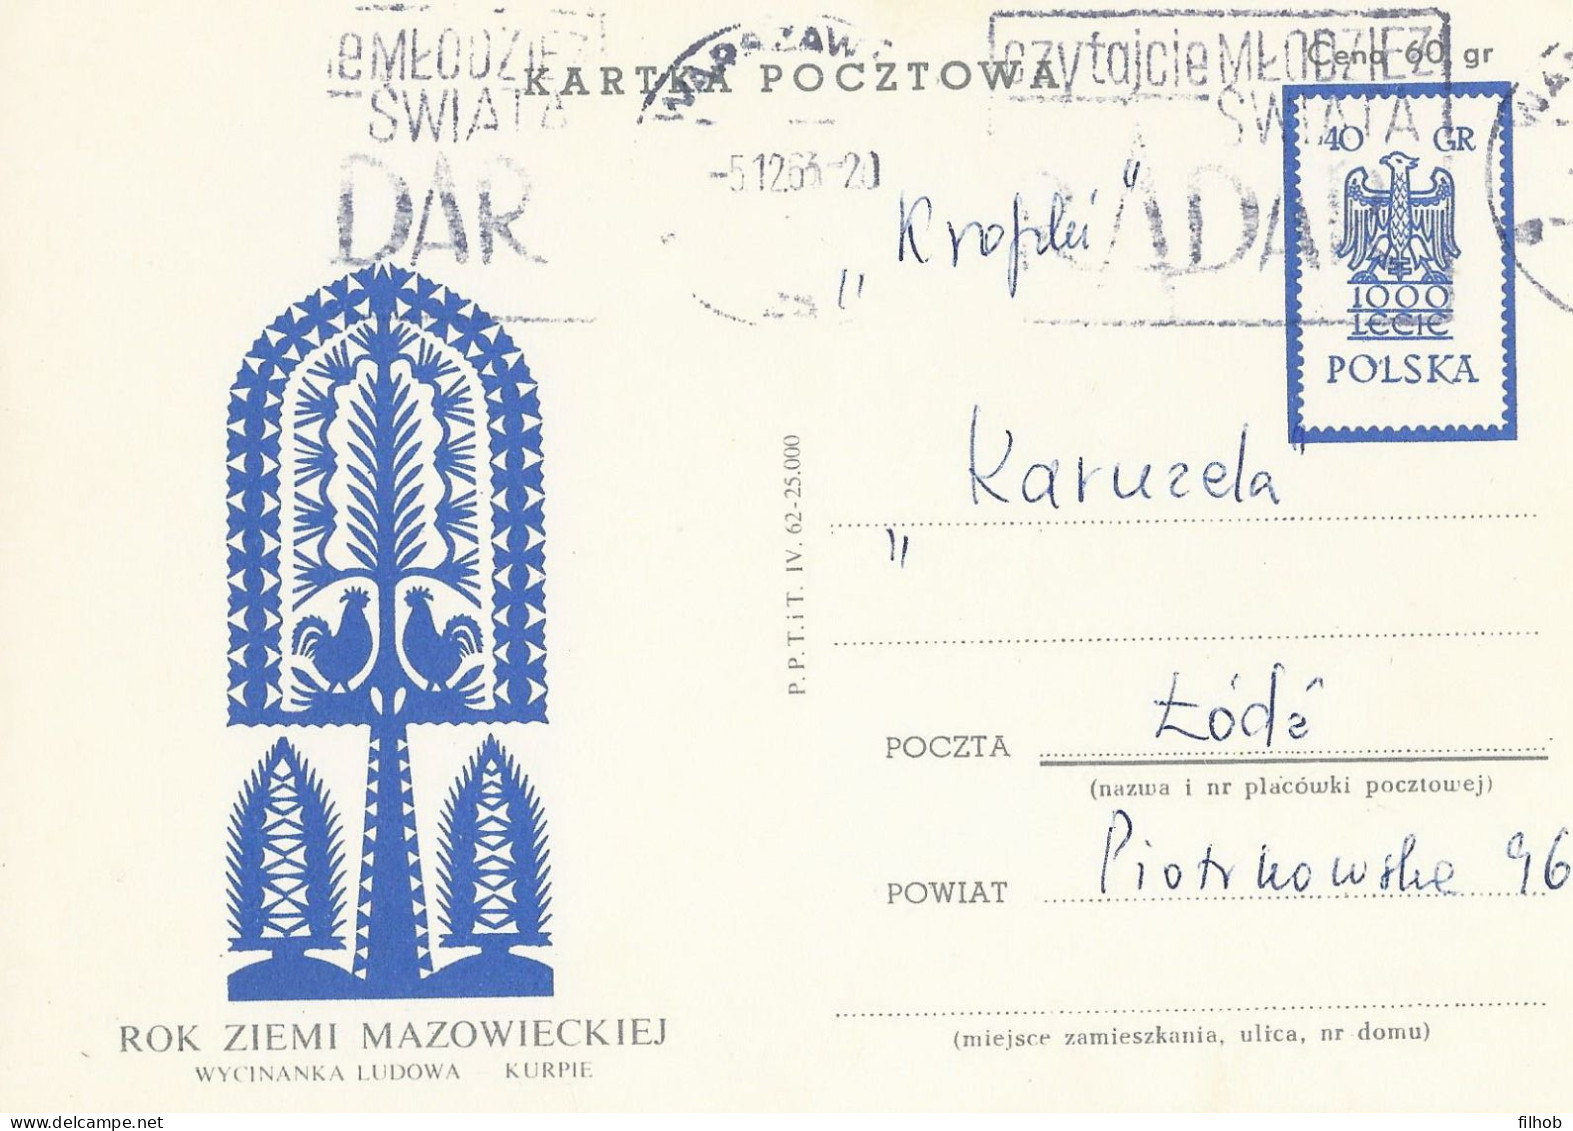 ie MŁODZIEŻ
ŚWIATA
DAR
WARSZAWA
-5.12.63-20
czytajcie MŁODZIEŻ
ŚWIATA
RADAR
KARTKA POCZTOWA
Cena 60 gr
40 GR
1000
LECIE
POLSKA
„Kropki"
„Karuzela"
P.P.T. i T. IV. 62-25.000
POCZTA Łódź
(nazwa i nr placówki pocztowej)
POWIAT Piotrkowska 96
(miejsce zamieszkania, ulica, nr domu)
ROK ZIEMI MAZOWIECKIEJ
WYCINANKA LUDOWA KURPIE
filhob